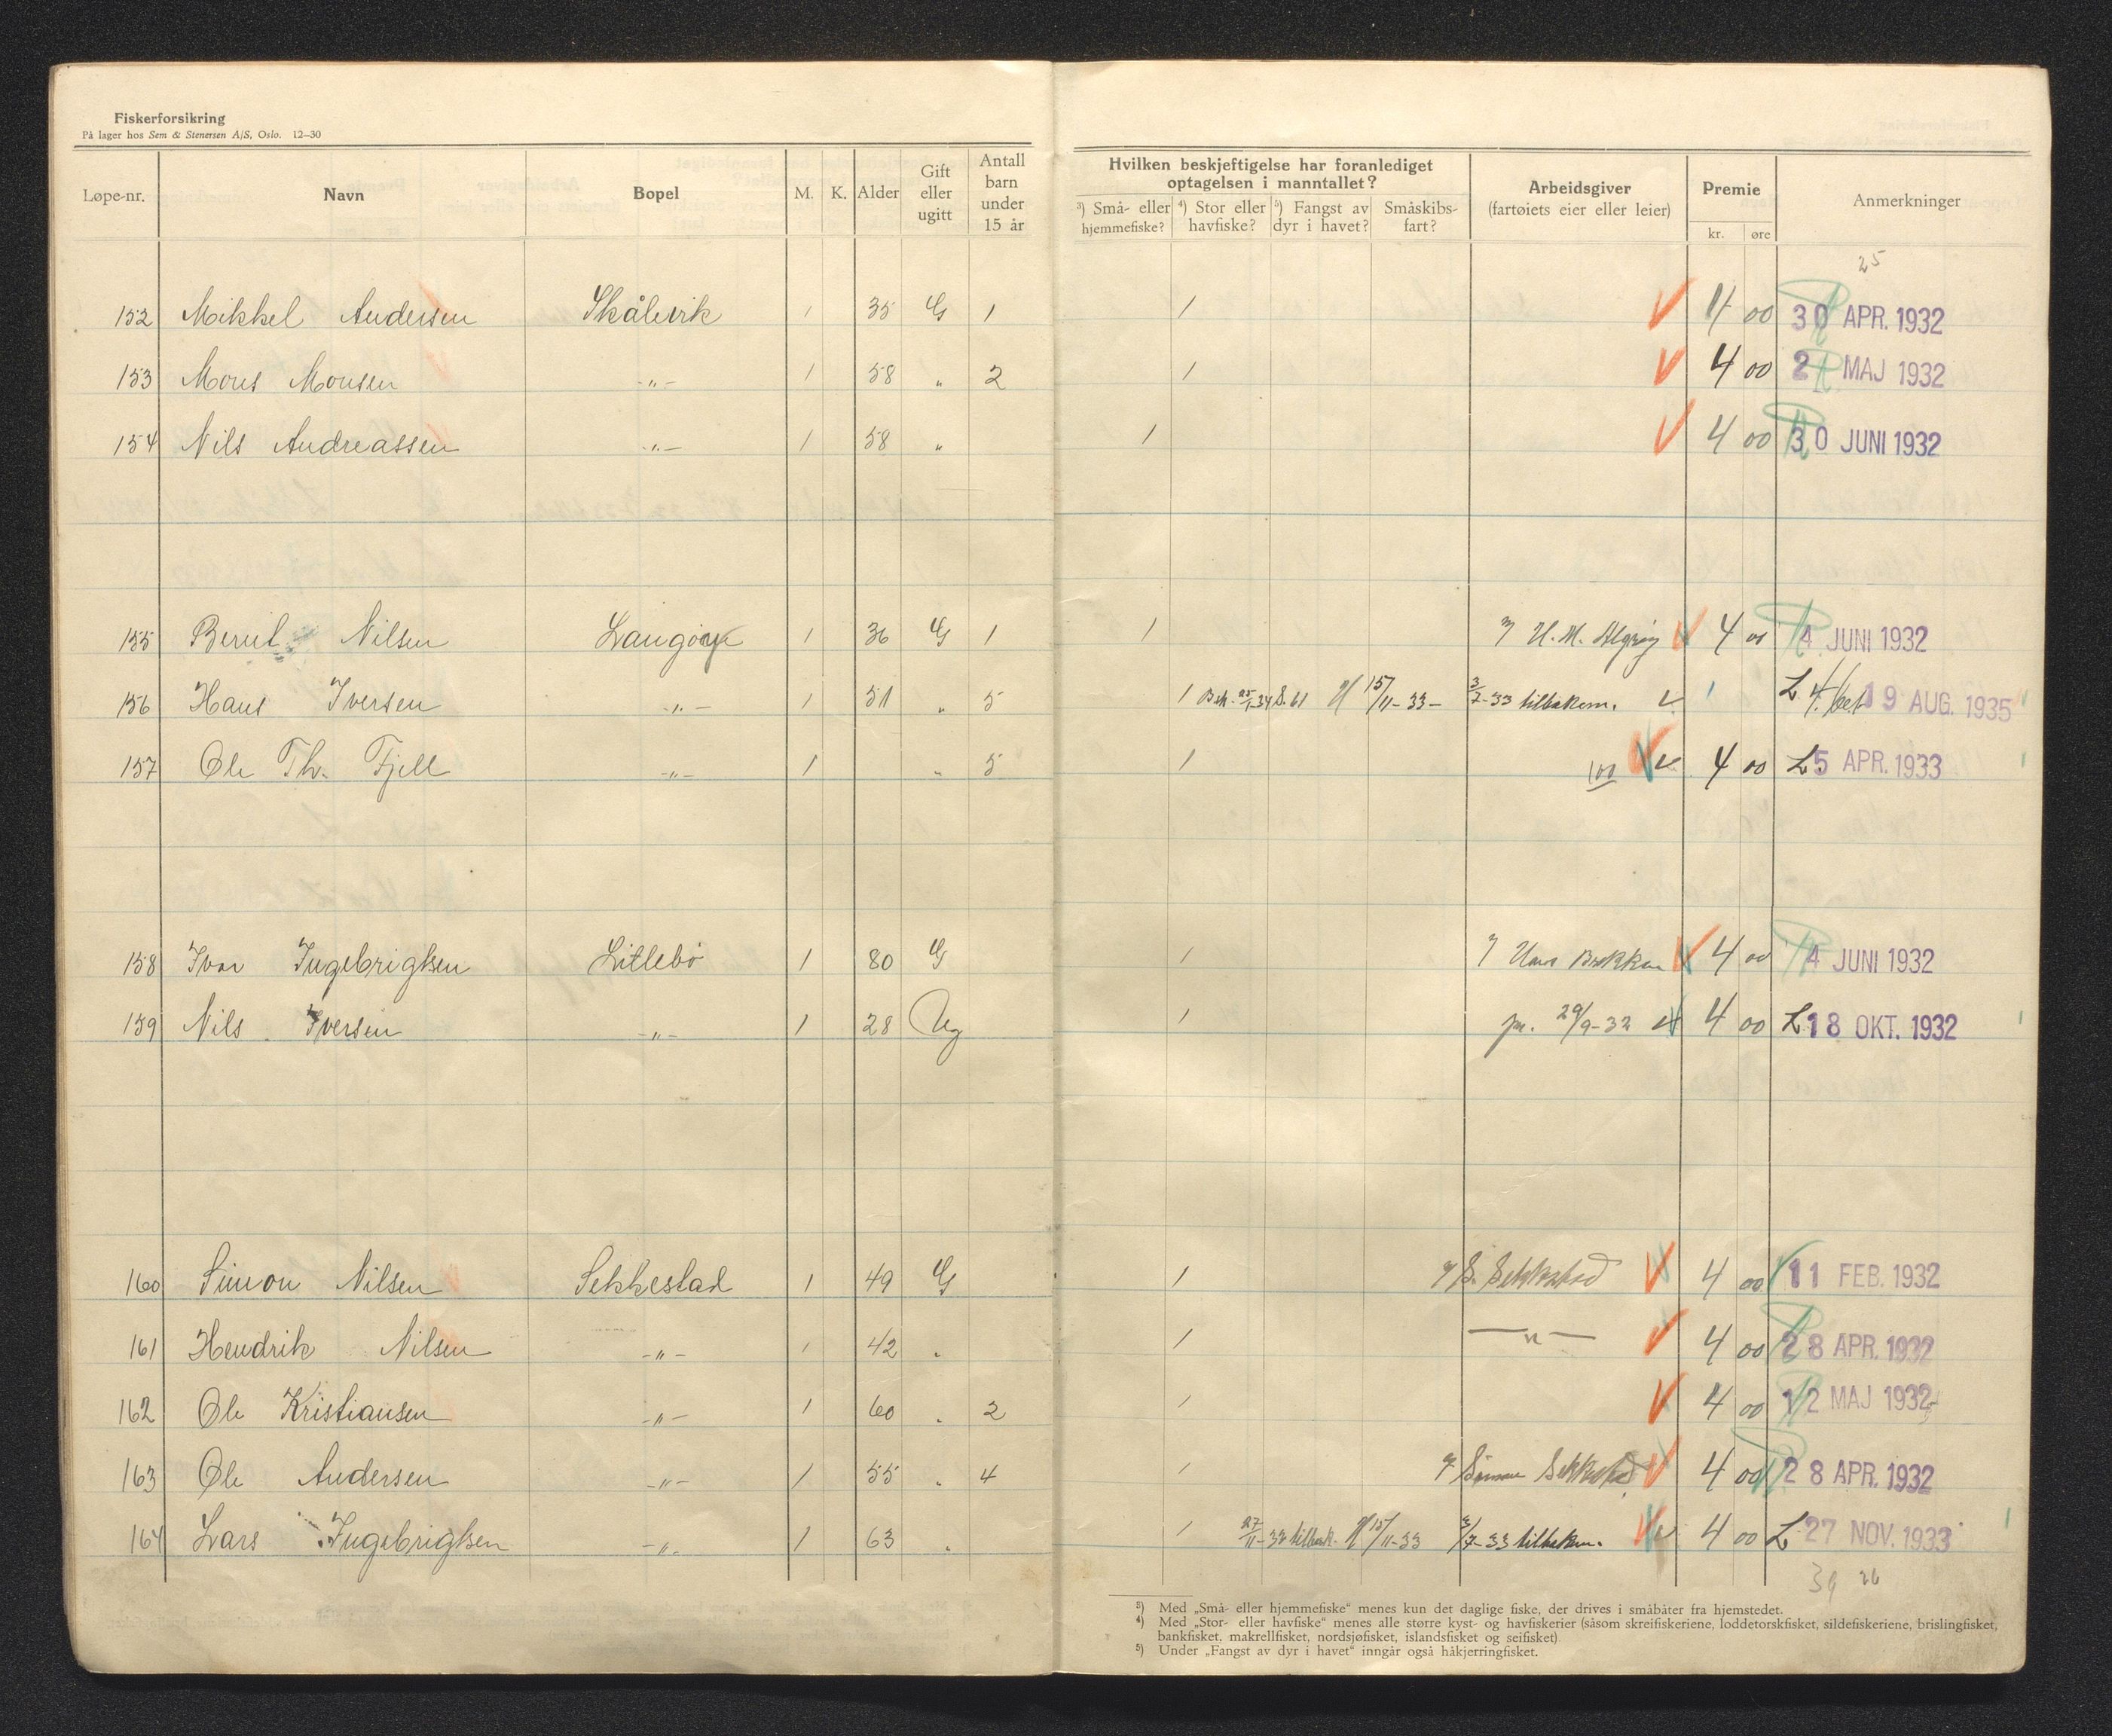 Fiskerforsikring
På lager hos Sem & Stenersen A/S, Oslo. 12—30
Løpe-nr. Navn Bopel M. K. Alder Gift eller ugitt Antall barn under 15 år
Hvilken beskjeftigelse har foranlediget optagelsen i manntallet?
³) Små- eller hjemmefiske? ⁴) Stor eller havfiske? ⁵) Fangst av dyr i havet? Småskibs-fart?
Arbeidsgiver (fartøiets eier eller leier) Premie kr. øre Anmerkninger
25
152 Mikkel Andersen Skålevik 1 35 G 1 1 4 00 30 APR. 1932
153 Mons Monsen -„- 1 58 „ 2 1 4 00 2 MAJ 1932
154 Nils Andreassen -„- 1 58 „ 1 4 00 30 JUNI 1932
155 Bernt Nilsen Langöy 1 36 G 1 1 H. M. 4 00 4 JUNI 1932
156 Hans Iversen -„- 1 51 „ 5 1 Bet. 25/1-34 S. 61 15/11-33- 3/7-33 tilbakem. L 4/ bet 19 AUG. 1935
157 Ole Th. Fjell -„- 1 „ 5 1 100 4 00 L 5 APR. 1933
158 Ivar Ingebrigtsen Litlebö 1 80 G 1 Hans Bakken 4 00 4 JUNI 1932
159 Nils Iversen -„- 1 28 Ug 1 29/9-32 4 00 L 18 OKT. 1932
160 Simon Nilsen Sekkestad 1 49 G 1 S. Sekkestad 4 00 11 FEB. 1932
161 Hendrik Nilsen -„- 1 42 „ 1 -„- 4 00 28 APR. 1932
162 Ole Kristiansen -„- 1 60 „ 2 1 4 00 12 MAJ 1932
163 Ole Andersen -„- 1 55 „ 4 1 Simon Sekkestad 4 00 28 APR. 1932
164 Lars Ingebrigtsen -„- 1 63 „ 1 27/11-33 tilbak. 15/11-33 3/7-33 tilbakem. 4 00 L 27 NOV. 1933
39 26
³) Med „Små- eller hjemmefiske“ menes kun det daglige fiske, der drives i småbåter fra hjemstedet.
⁴) Med „Stor- eller havfiske“ menes alle større kyst- og havfiskerier (såsom skreifiskeriene, loddetorskfisket, sildefiskeriene, brislingfisket,
bankfisket, makrellfisket, nordsjøfisket, islandsfisket og seifisket)
⁵) Under „Fangst av dyr i havet“ inngår også håkjerringfisket.